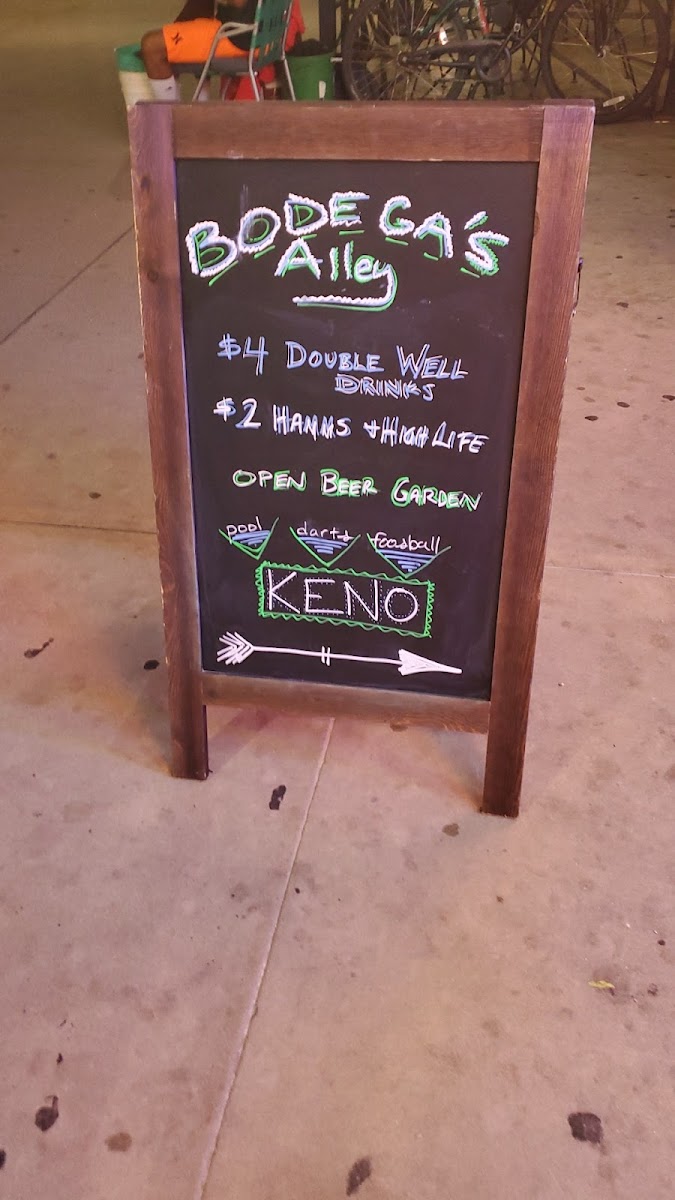 BODEGA'S
Alley
$4 DOUBLE WELL
DRINKS
$2 HAMMS + HIGH LIFE
OPEN BEER GARDEN
pool darts foosball
KENO